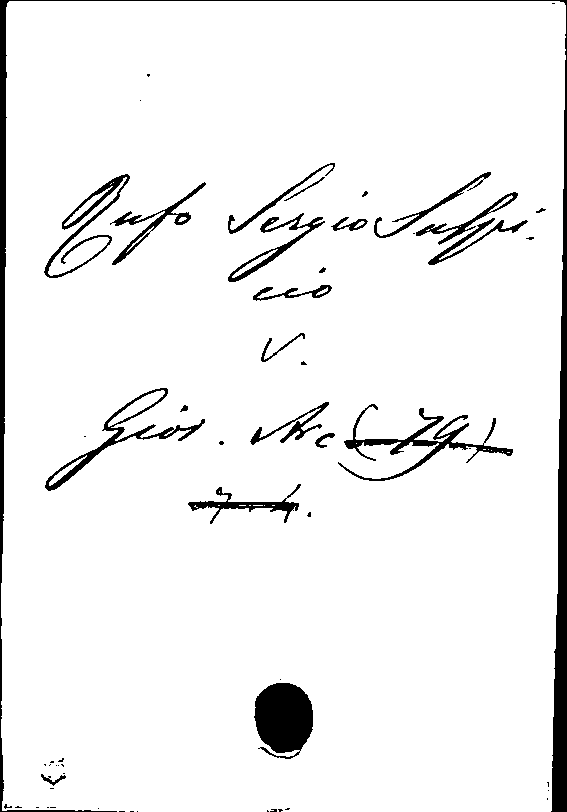 Rufo Sergio Sulpi-
cio
V.
Gior. Arc (79)
7. 4.